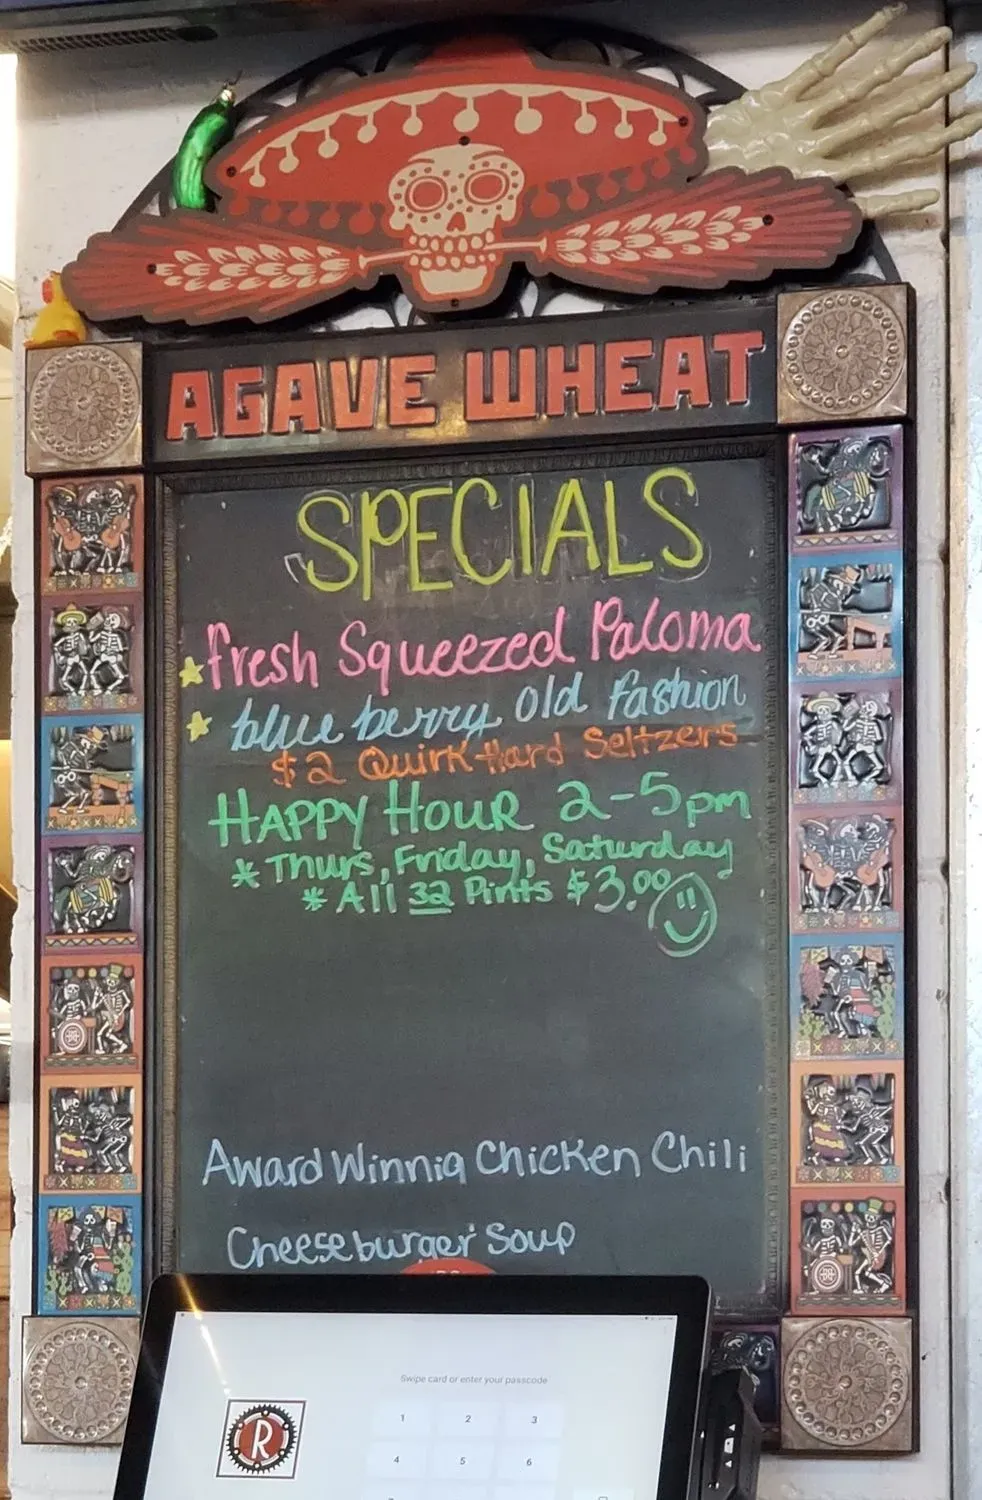 AGAVE WHEAT
SPECIALS
fresh Squeezed Paloma
blue berry old fashion
$2 Quirk Hard Seltzers
HAPPY HOUR 2-5pm
* Thurs, Friday, Saturday
* All 32 Pints $3.00
Award Winnig Chicken Chili
Cheeseburger Soup
Swipe card or enter your passcode
1 2 3
4 5 6
R